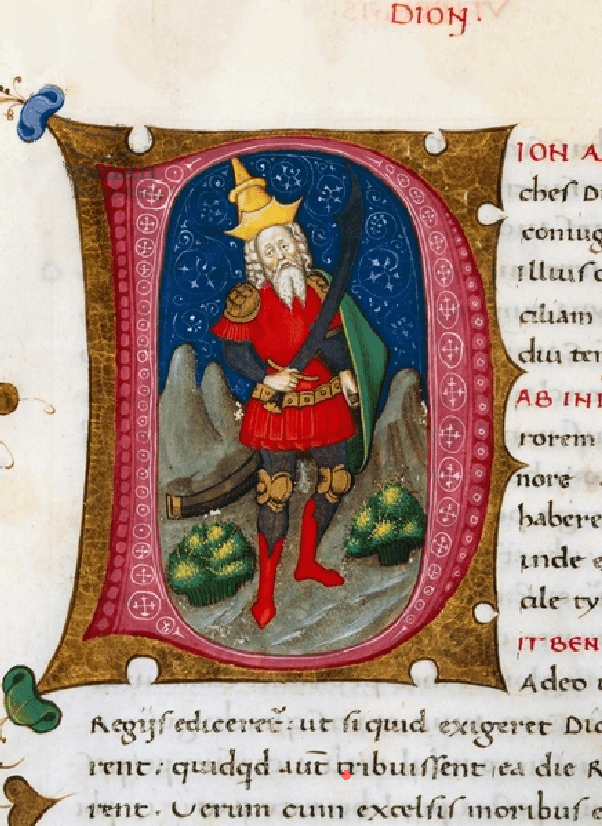 DION.
ION A
cheſ D
coniug
Illiuſ c
ciliam
dui ter
AB INI
rorem
nore
habere
inde e
cile ty
IT BEN
Adeo u
Regijſ ediceret̃: ut ſi quid exigeret Dio
rent: quidqd aut̃ tribuiſſent ea die R
rent. Verum cum excelſis moribuſ e